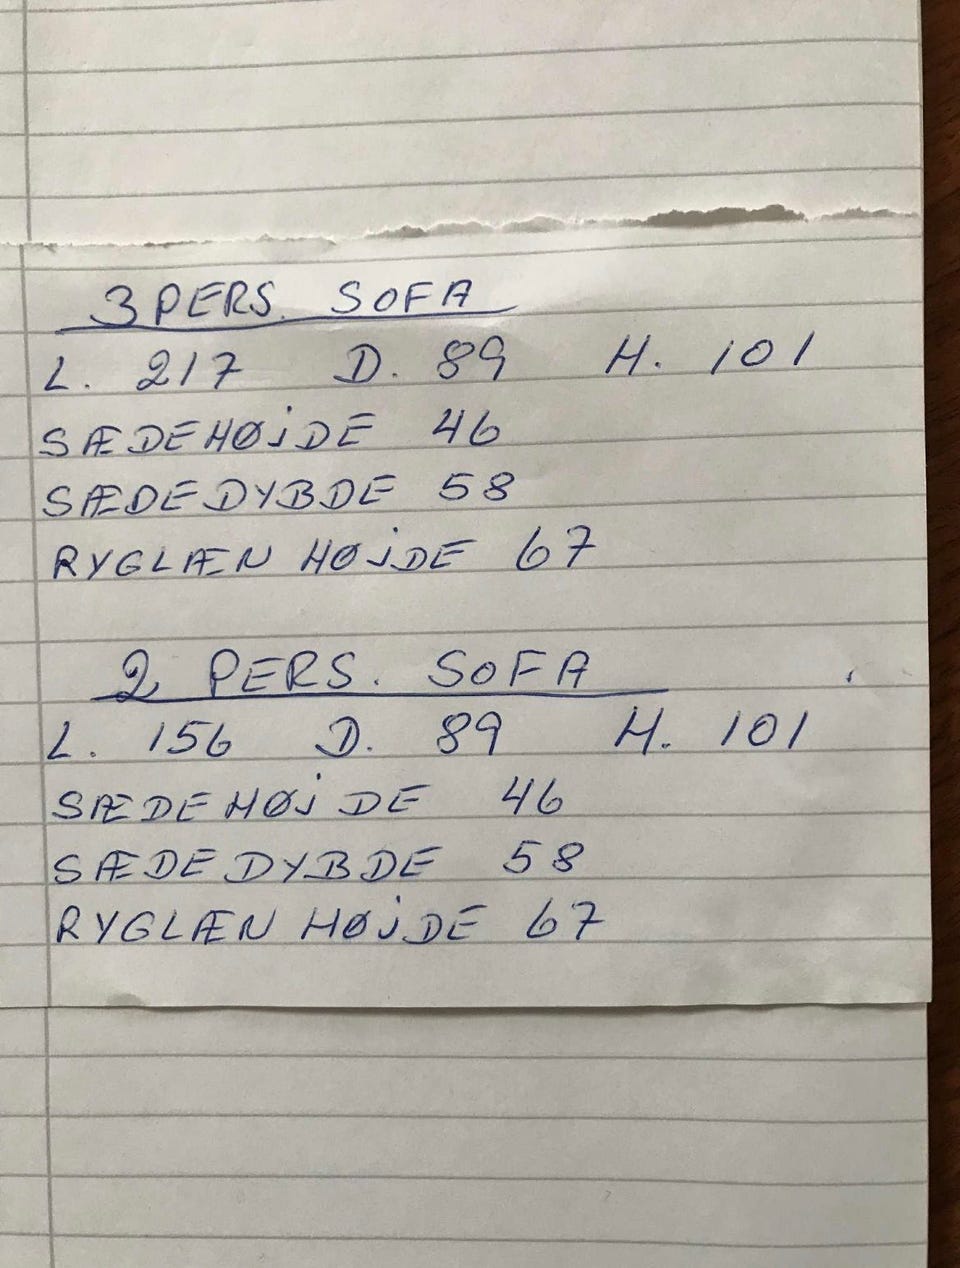 3 PERS. SOFA
L. 217 D. 89 H. 101
SÆDEHØJDE 46
SÆDEDYBDE 58
RYGLÆN HØJDE 67
2 PERS. SOFA
L. 156 D. 89 H. 101
SÆDEHØJDE 46
SÆDEDYBDE 58
RYGLÆN HØJDE 67